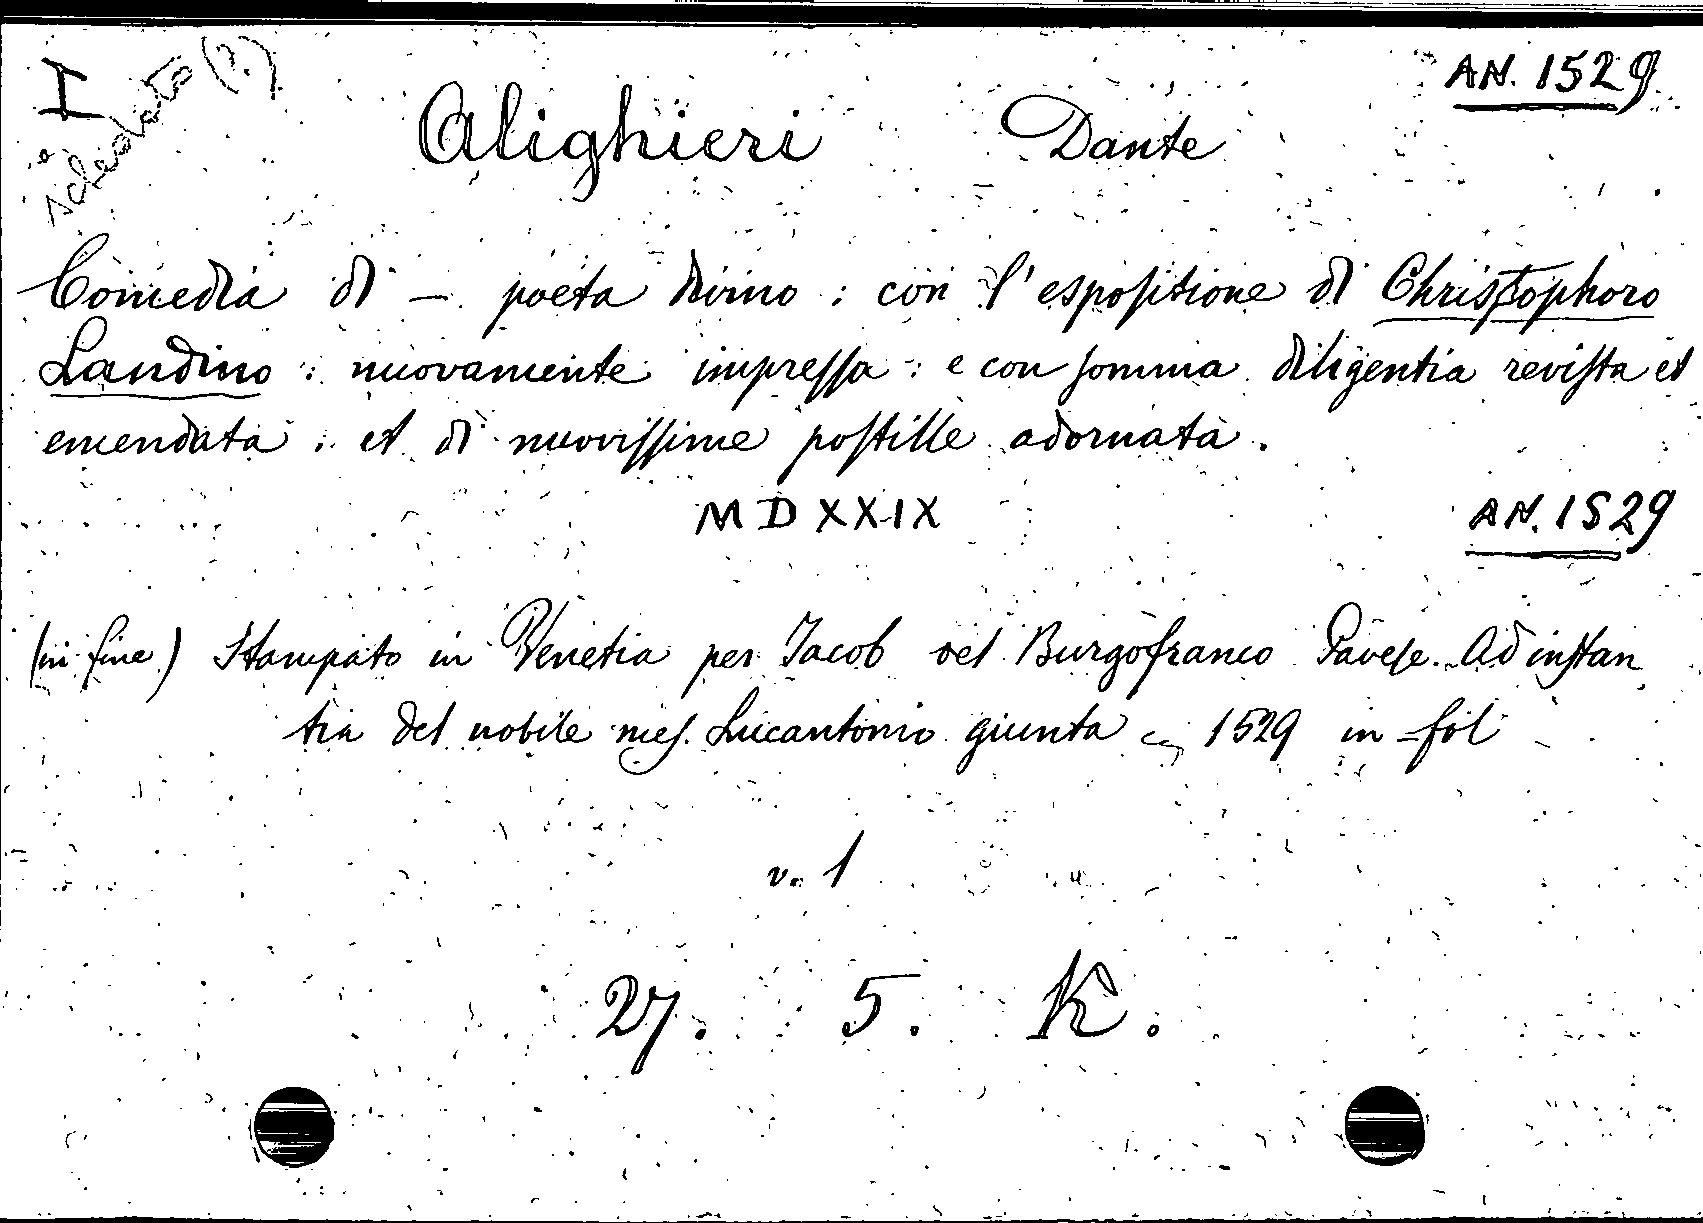 I
schedato (?)
AN. 1529
Alighieri Dante
Comedia di — poeta divino : con l'espoſitione di Christophoro
Landino : nuovamente impreſſa : e con ſomma diligentia reviſta et
emendata : et di nuoviſſime poſtille adornata.
MDXXIX
AN. 1529
(in fine) Stampato in Venetia per Jacob del Burgofranco Paveſe. Ad inſtan
tia del nobile meſ. Lucantonio giunta 1529 in fol
v. 1
27. 5. K.